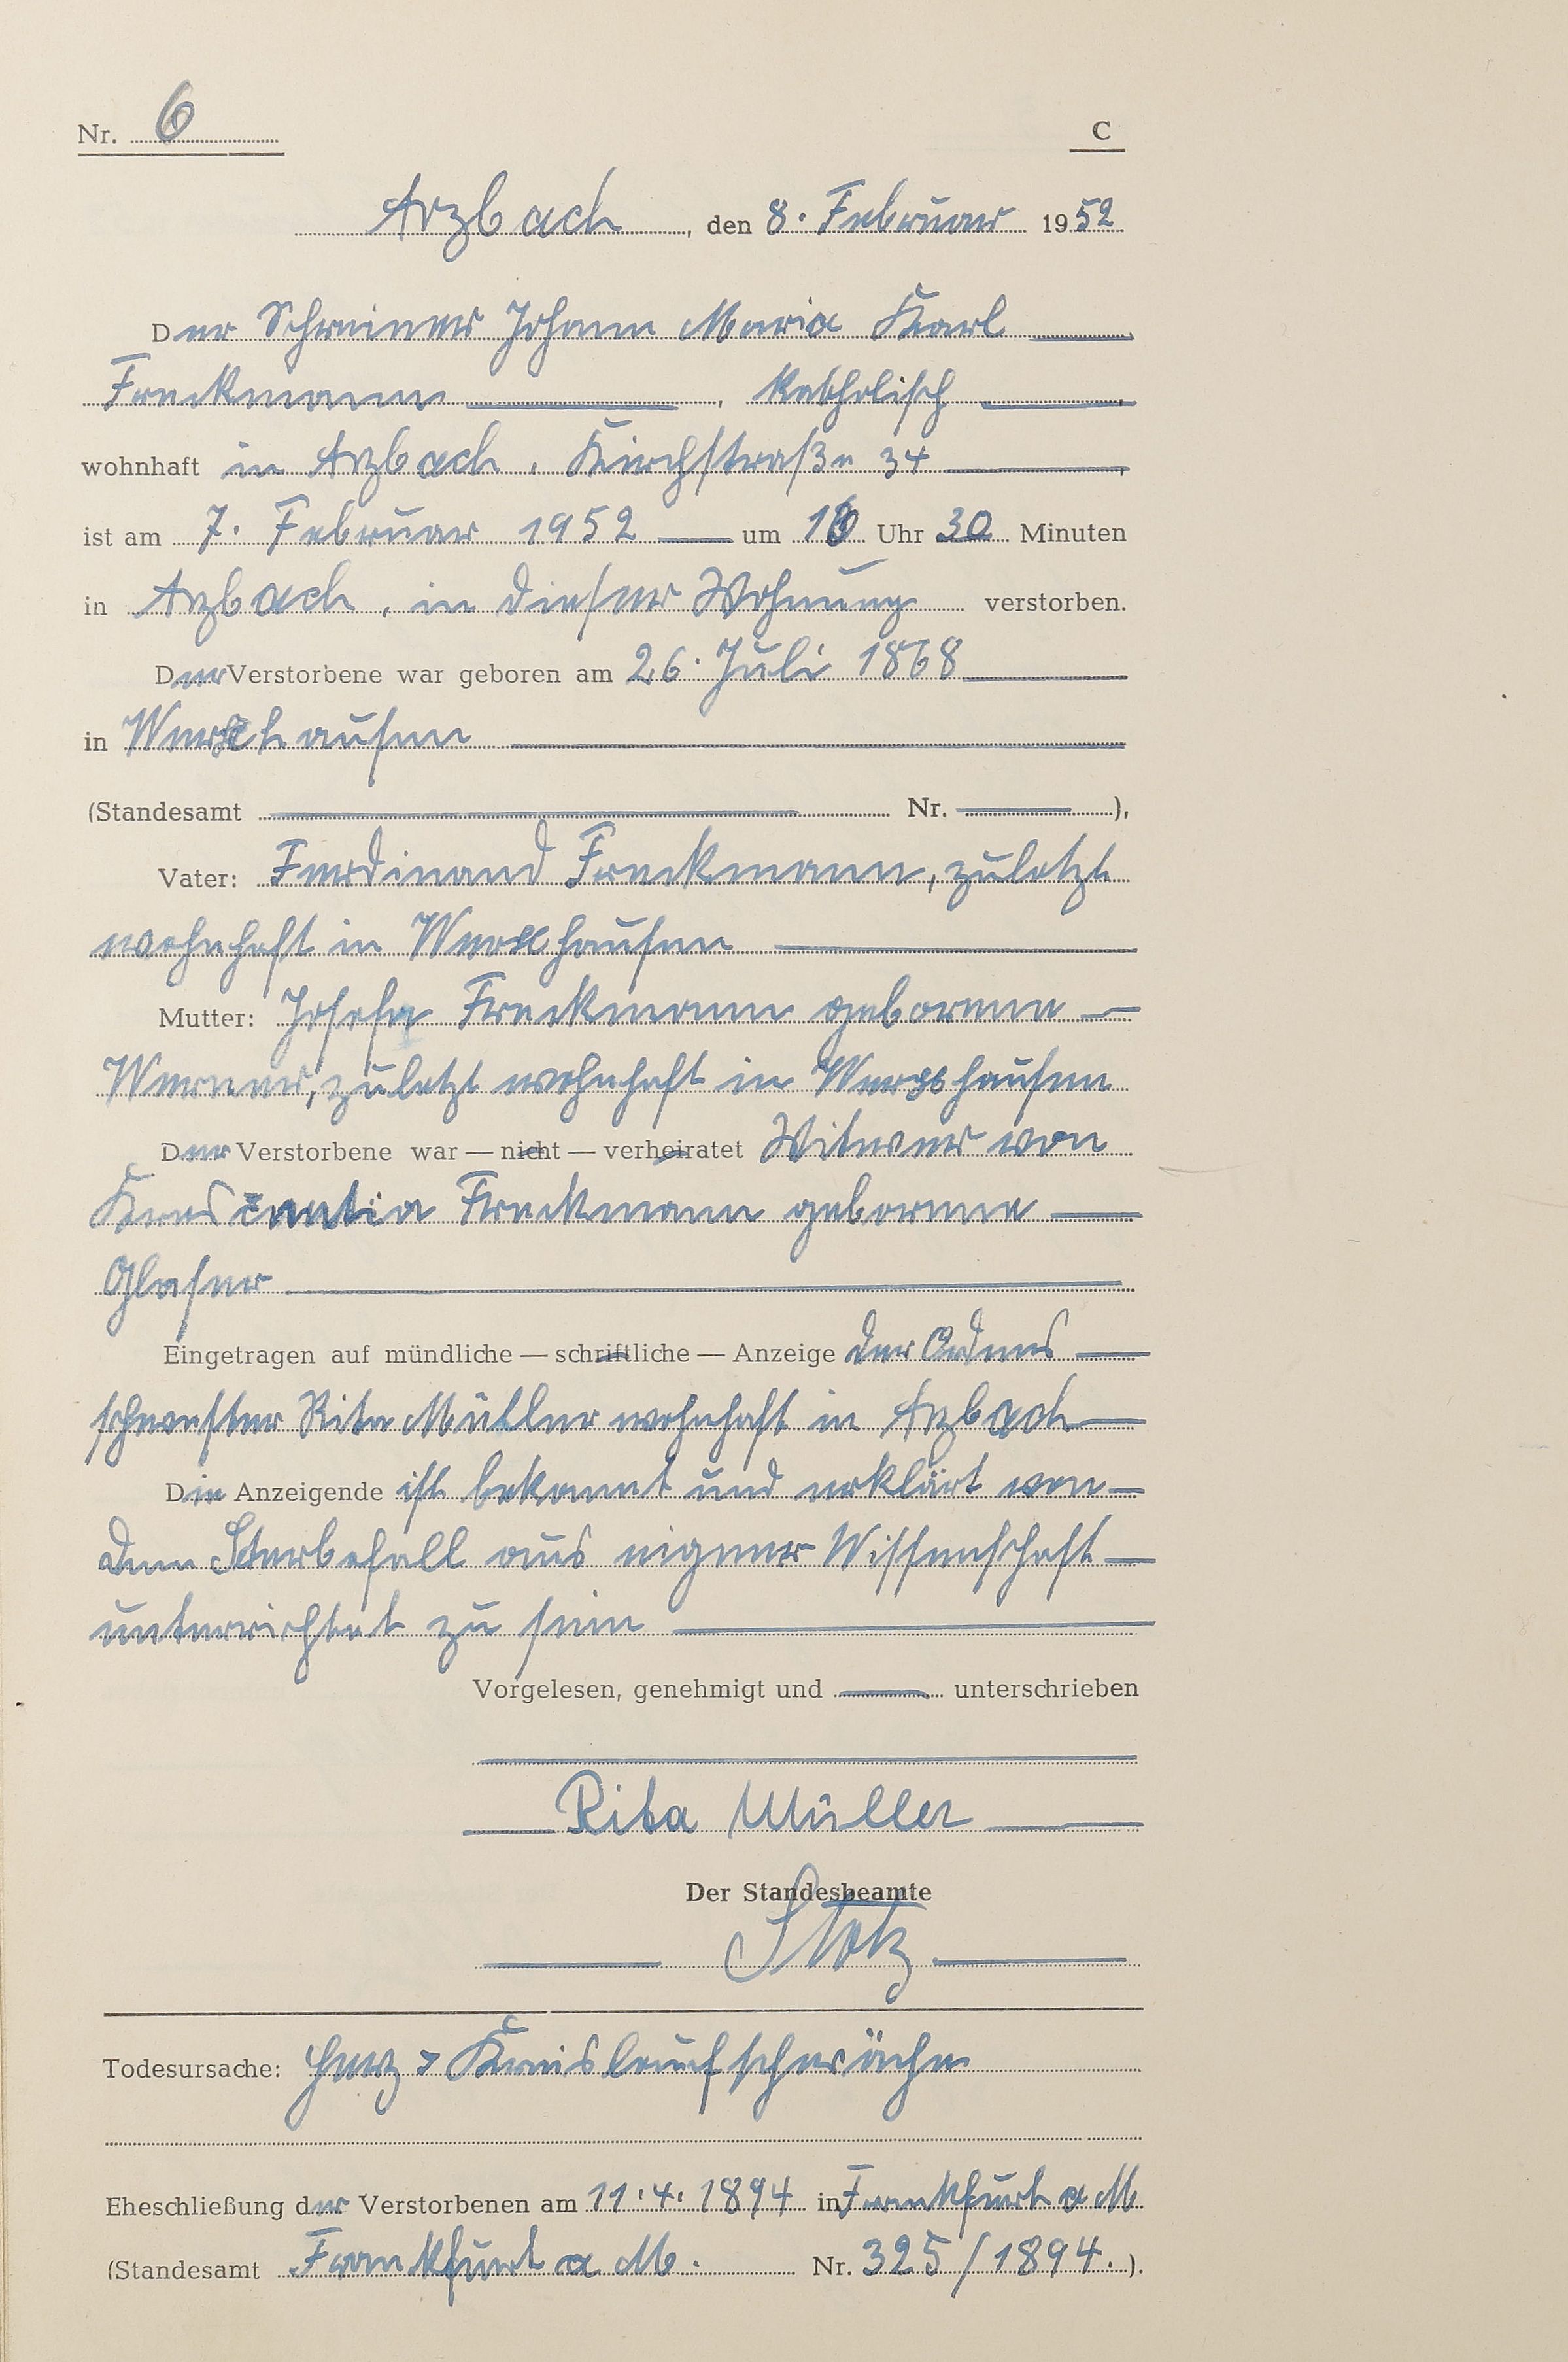 Nr. 6
C
Arzbach, den 8. Februar 1952
Der Schreiner Johann Maria Karl
Freckmann, katholisch
wohnhaft in Arzbach, Kirchstraße 34
ist am 7. Februar 1952 um Uhr 30 Minuten
in Arzbach, in dieser Wohnung verstorben.
Der Verstorbene war geboren am 26. Juli 1868
in
(Standesamt Nr. ),
Vater: Ferdinand Freckmann, zuletzt
wohnhaft in Werxhausen
Mutter: Josefa Freckmann geborene
Werner, zuletzt wohnhaft in Werxhausen
Der Verstorbene war — nicht — verheiratet Witwer von
Kreszentia Freckmann geborene
Glaser
Eingetragen auf mündliche — schriftliche — Anzeige der Ordens
schwester Rita Müller wohnhaft in Arzbach
Die Anzeigende ist bekannt und erklärt von
dem Sterbefall aus eigener Wissenschaft
unterrichtet zu sein
Vorgelesen, genehmigt und unterschrieben
Rita Müller
Der Standesbeamte
Stotz
Todesursache: Herz - Kreislaufschwäche
Eheschließung der Verstorbenen am 11.4.1894 in Frankfurt a M
(Standesamt Frankfurt a M. Nr. 325/1894.).